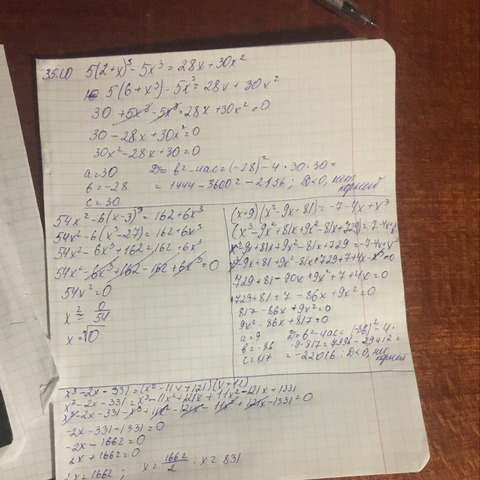 35.10 5(2+x)³-5x³=28x+30x²
5(6+x³)-5x³=28x+30x²
30+5x³-5x³=28x+30x²=0
30-28x+30x²=0
30x²-28x+30=0
a=30 D=b²-4ac=(-28)²-4·30·30=
b=-28 =1444-3600=-2156; D<0, нет корней
c=30
54x²-6(x-3)³=162+6x³
54x²-6(x³-27)=162+6x³
54x²-6x³+162=162+6x³
54x²-6x³+162-162+6x³=0
54x²=0
x²=0/54
x=√0
(x+9)(x²-9x+81)=-7-4x+x³
729+81-90x+9x²+7+4x=0
+729+81+7-86x+9x²=0
817-86x+9x²=0
9x²-86x+817=0
a=9 D=b²-4ac=(-86)²-4·
b=-86 9·817=7396-29412=
c=817 =-22016; D<0, нет корней
x³-2x-331=(x²-11x+121)(x+11)
x³-2x-331=x³-11x²+121x+11x²-121x+1331
x³-2x-331-x³+11x²-121x-11x²+121x-1331=0
-2x-331-1331=0
-2x-1662=0
2x+1662=0
2x=1662; x=1662/2; x=831